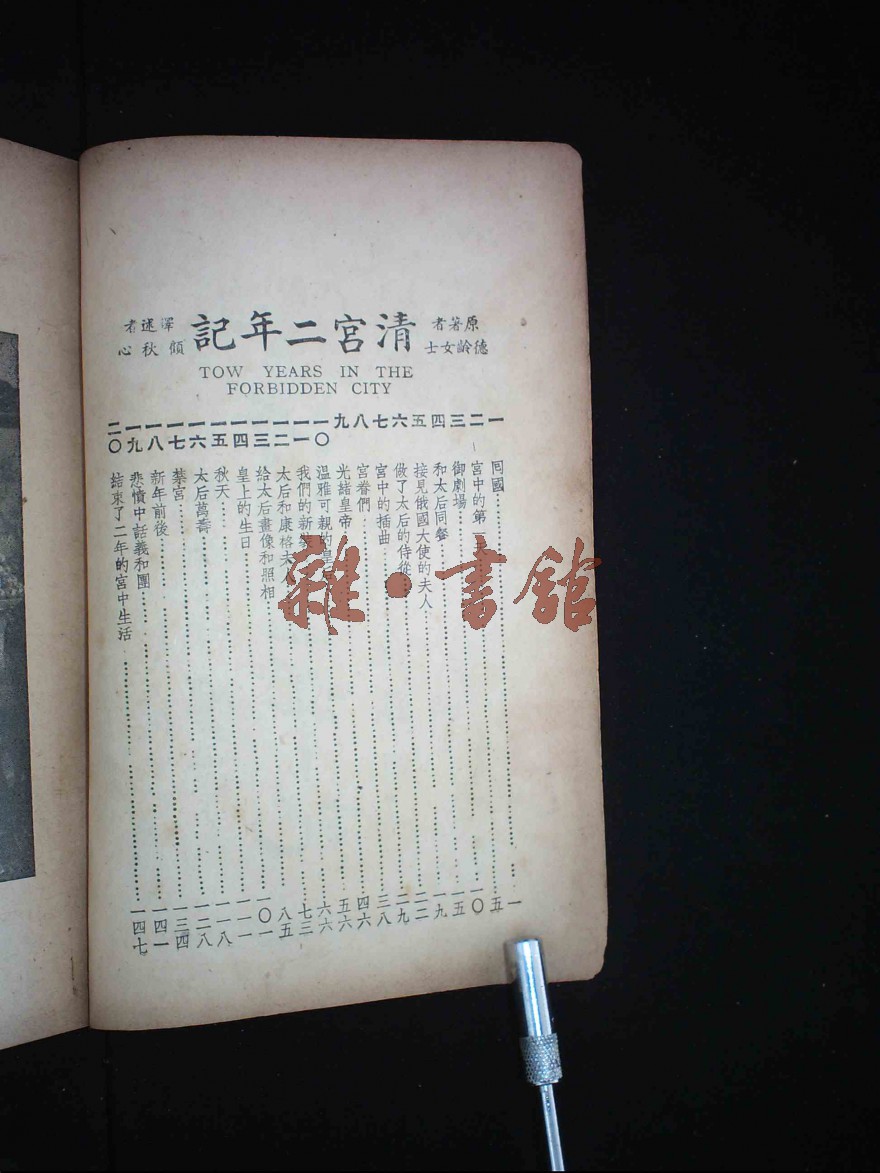 原著者
德齡女士
清宮二年記
譯述者
顧秋心
TOW YEARS IN THE
FORBIDDEN CITY
一 囘國 一
二 宮中的第天 五
三 御劇場 一〇
四 和太后同餐 一五
五 接見俄國大使的夫人 一九
六 做了太后的侍從 二二
七 宮中的插曲 二九
八 宮眷們 三八
九 光緒皇帝 四六
一〇 溫雅可親的皇 五六
一一 我們的新 六六
一二 太后和康格夫人 七三
一三 給太后畫像和照相 八五
一四 皇上的生日 一〇一
一五 秋天 一一一
一六 太后萬壽 一一八
一七 禁宮 一二八
一八 新年前後 一三四
一九 悲憤中話義和團 一四一
二〇 結束了二年的宮中生活 一四七
雜·書館